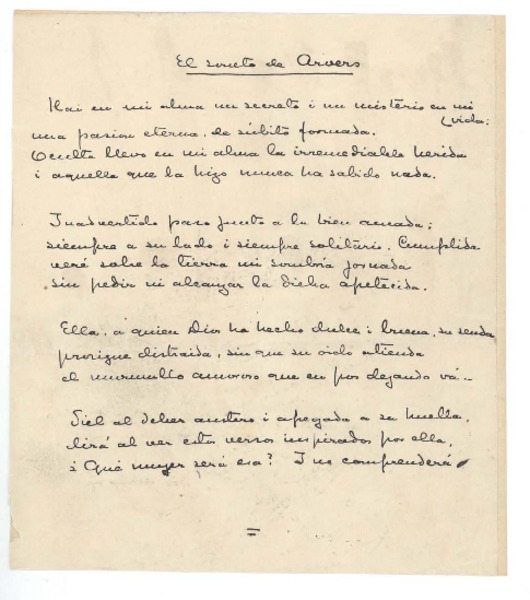 El soneto de Arvers
Hai en mi alma un secreto i un misterio en mi
vida:
una pasion eterna, de súbito formada.
Oculta llevo en mi alma la irremediable herida
i aquella que la hizo nunca ha sabido nada.
Inadvertido paso junto a la bien amada;
siempre a su lado i siempre solitario. Cumplida
veré sobre la tierra mi sombría jornada
sin pedir ni alcanzar la dicha apetecida.
Ella, a quien Dios ha hecho dulce i buena, su senda
prosigue distraida, sin que su oido atienda
el murmullo amoroso que en pos dejando vá...
Fiel al deber austero i apegada a su huella,
dirá al ver estos versos inspirados por ella,
¿Qué mujer será esa? I no comprenderá.